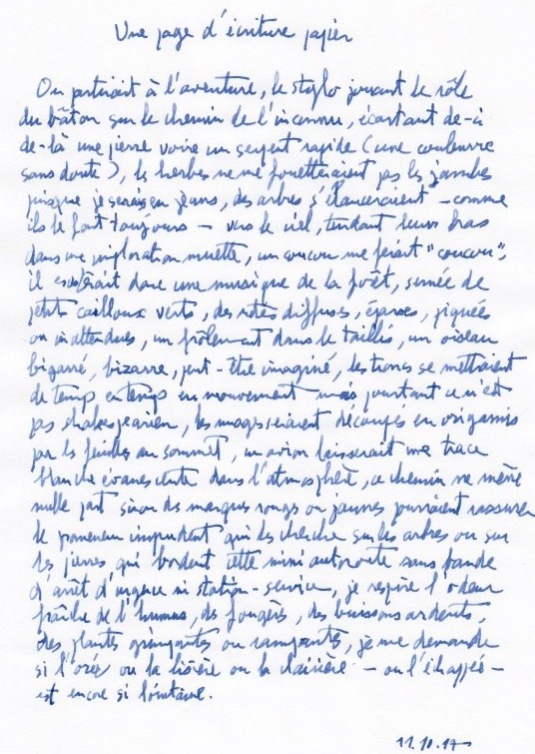 Une page d'écriture papier
On partirait à l'aventure, le stylo jouant le rôle
du bâton sur le chemin de l'inconnu, écartant de-ci
de-là une pierre voire un serpent rapide (une couleuvre
sans doute), les herbes ne me fouetteraient pas les jambes
puisque je serais en jeans, des arbres s'élanceraient - comme
ils le font toujours - vers le ciel, tendant leurs bras
dans une imploration muette, un coucou me ferait "coucou",
il existerait donc une musique de la forêt, semée de
petits cailloux verts, des notes diffuses, éparses, piquées
ou inattendues, un frôlement dans le taillis, un oiseau
bigarré, bizarre, peut-être imaginé, les troncs se mettraient
de temps en temps en mouvement mais pourtant ce n'est
pas shakespearien, les nuages seraient découpés en origamis
par les feuilles au sommet, un avion laisserait une trace
blanche évanescente dans l'atmosphère, ce chemin ne mène
nulle part sinon des marques rouges ou jaunes pourraient rassurer
le promeneur imprudent qui les cherche sur les arbres ou sur
les pierres qui bordent cette mini autoroute sans bande
d'arrêt d'urgence ni station-service, je respire l'odeur
fraîche de l'humus, des fougères, des buissons ardents,
des plantes grimpantes ou rampantes, je me demande
si l'orée ou la lisière ou la clairière - ou l'échappée -
est encore si lointaine.
11.10.17